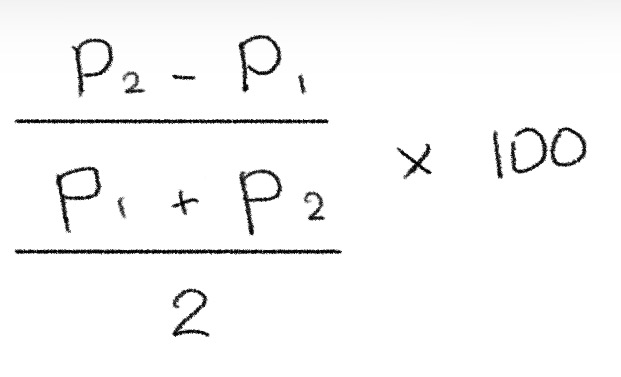 P₂ - P₁
P₁ + P₂ × 100
2